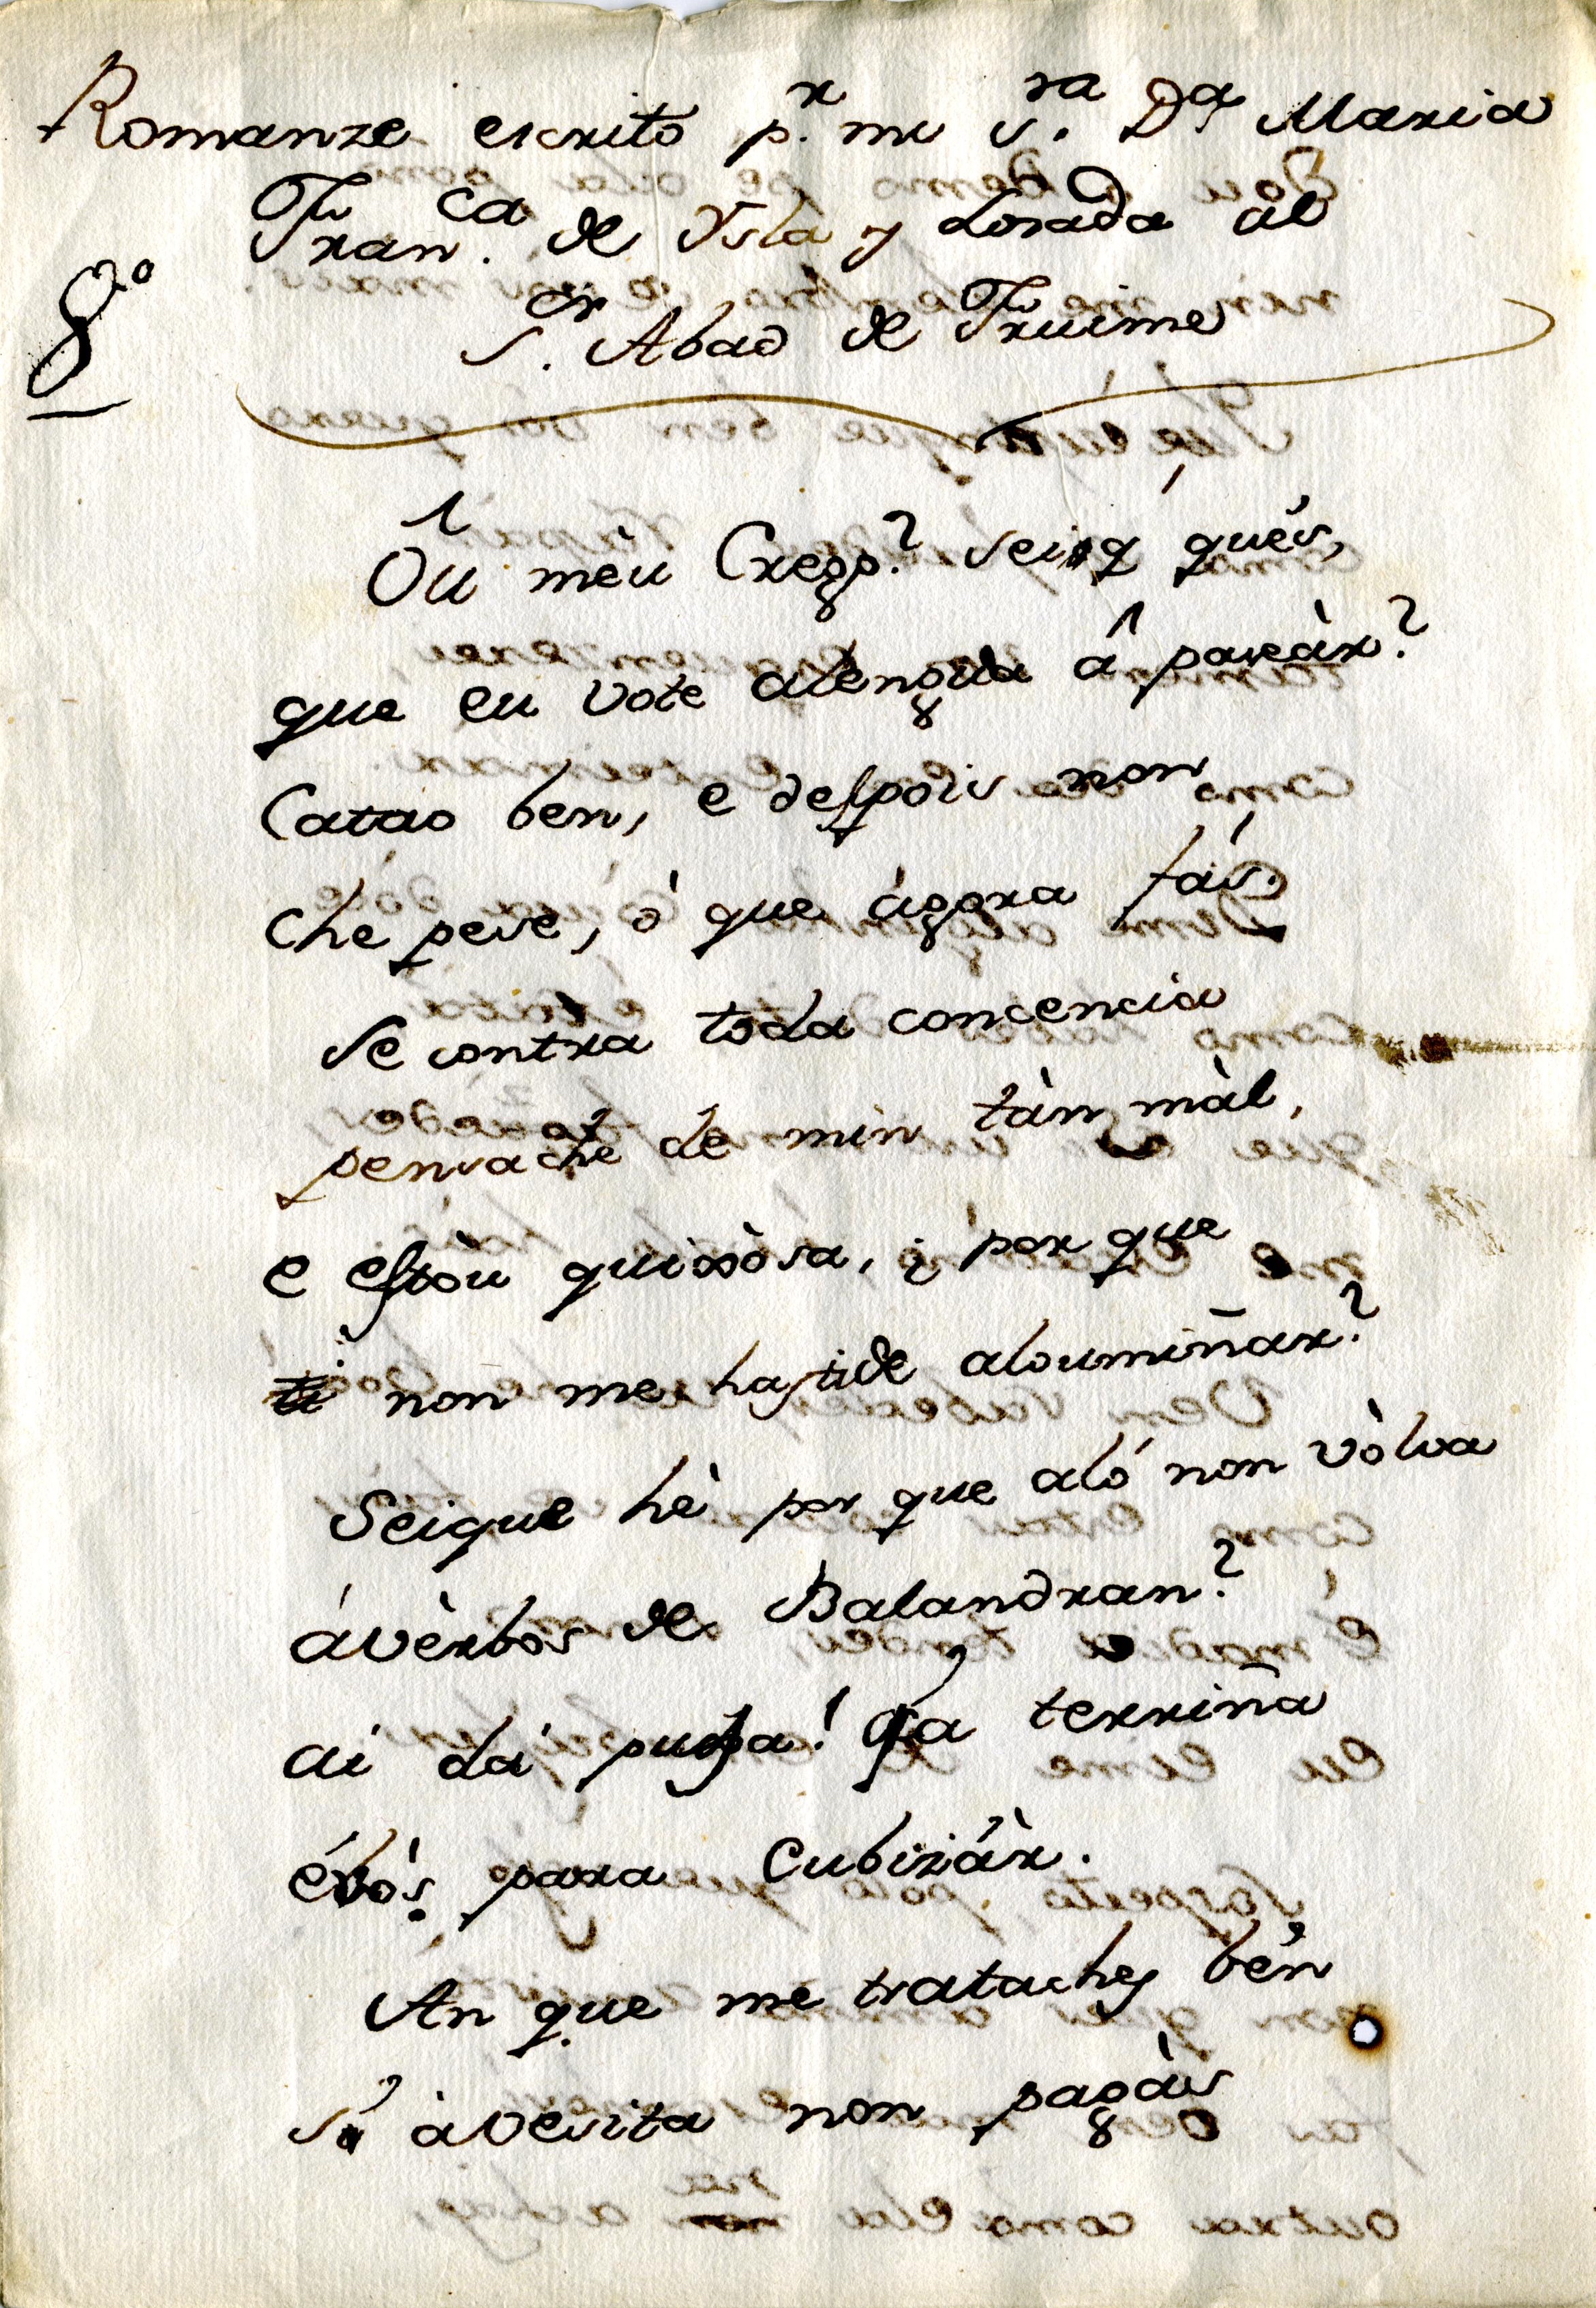 Romanze escrito p.r mi S.ra D.a Maria
Fran.ca de Ysla y Losada al
S.or Abad de Fruime
8º
Oû mèu Cregọ? seiq qués,
que eu vote alengua â paseàr?
Catao ben, e despois non
che pese, ò que àgora fás.
Se contra toda concencia
pensache de min tàn màl,
e estòu quixòsa, ¿ por que
non me hastide aloumiñar?
Seique hè por que aló non vòlva
ávèrbos de Balandran?
ai da puga! Qa terriña
évós para Cubizár.
An que me trataches bén
si àvesita non pagàis